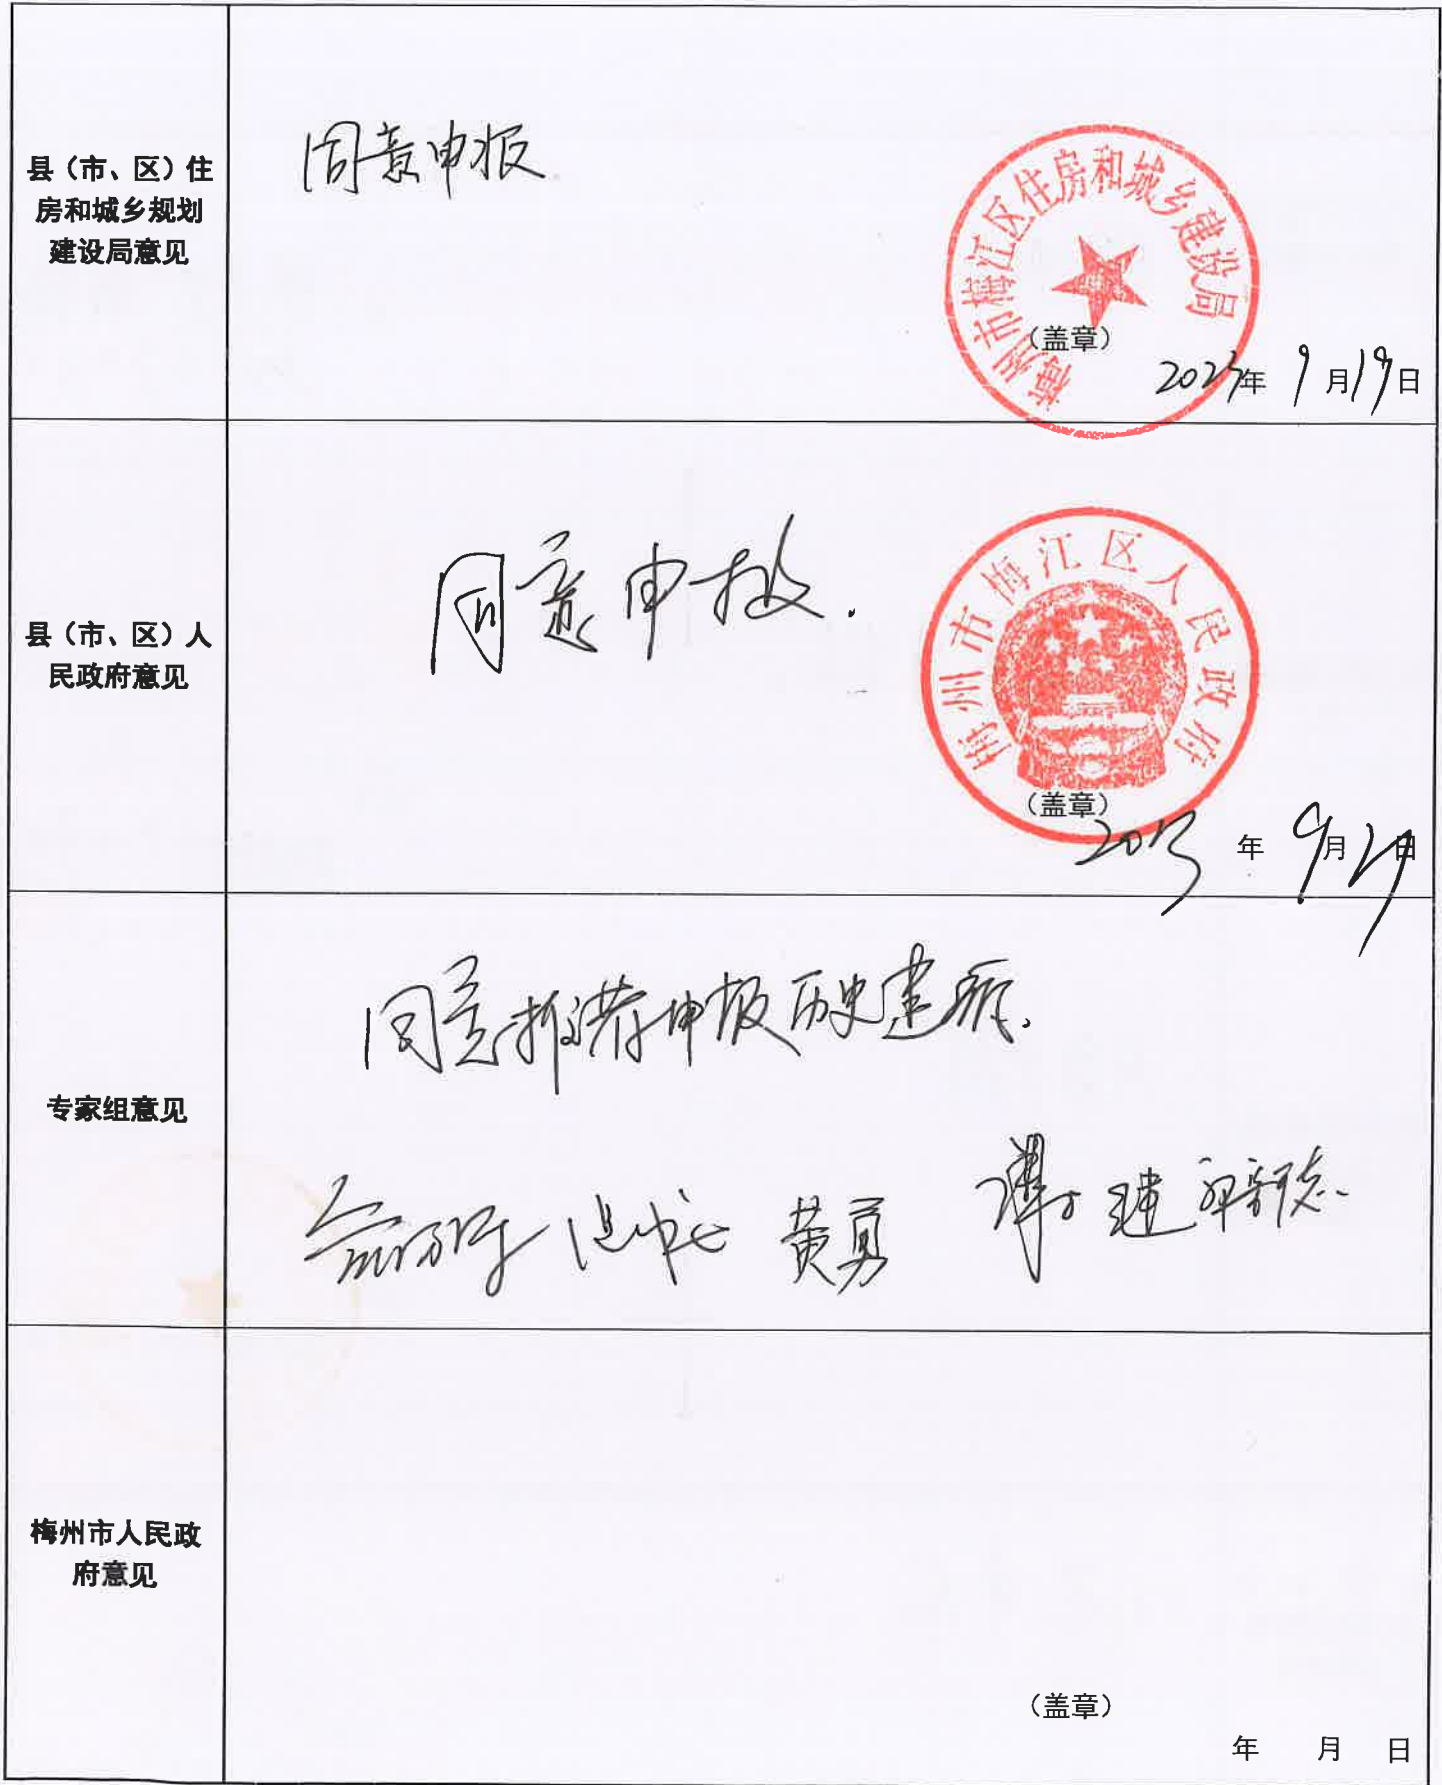 县（市、区）住
房和城乡规划
建设局意见
同意申报
梅州市梅江区住房和城乡建设局
（盖章）
2023年 9月19日
县（市、区）人
民政府意见
同意申报.
梅州市梅江区人民政府
（盖章）
2023 年 9月 日
专家组意见
同意推荐申报历史建筑.
黄勇
梅州市人民政
府意见
（盖章）
年 月 日